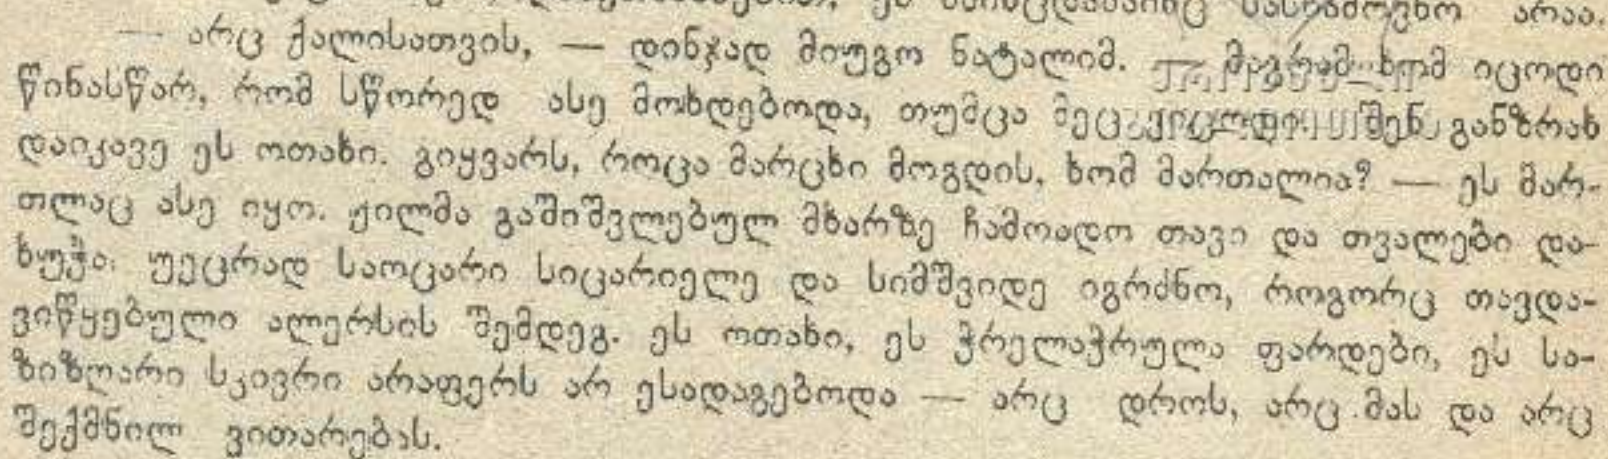 არაა.
— არც ქალისათვის, — დინჯად მიუგო ნატალიმ. — მაგრამ ხომ იცოდი
წინასწარ, რომ სწორედ ასე მოხდებოდა, თუმცა მეც ვიცოდი. შენ განზრახ
დაიკავე ეს ოთახი. გიყვარს, როცა მარცხი მოგდის, ხომ მართალია? — ეს მარ-
თლაც ასე იყო. ჟილმა გაშიშვლებულ მხარზე ჩამოადო თავი და თვალები და-
ხუჭა. უეცრად საოცარი სიცარიელე და სიმშვიდე იგრძნო, როგორც თავდა-
ვიწყებული ალერსის შემდეგ. ეს ოთახი, ეს ჭრელაჭრულა ფარდები, ეს სა-
ზიზღარი სკივრი არაფერს არ ესადაგებოდა — არც დროს, არც მას და არც
შექმნილ ვითარებას.